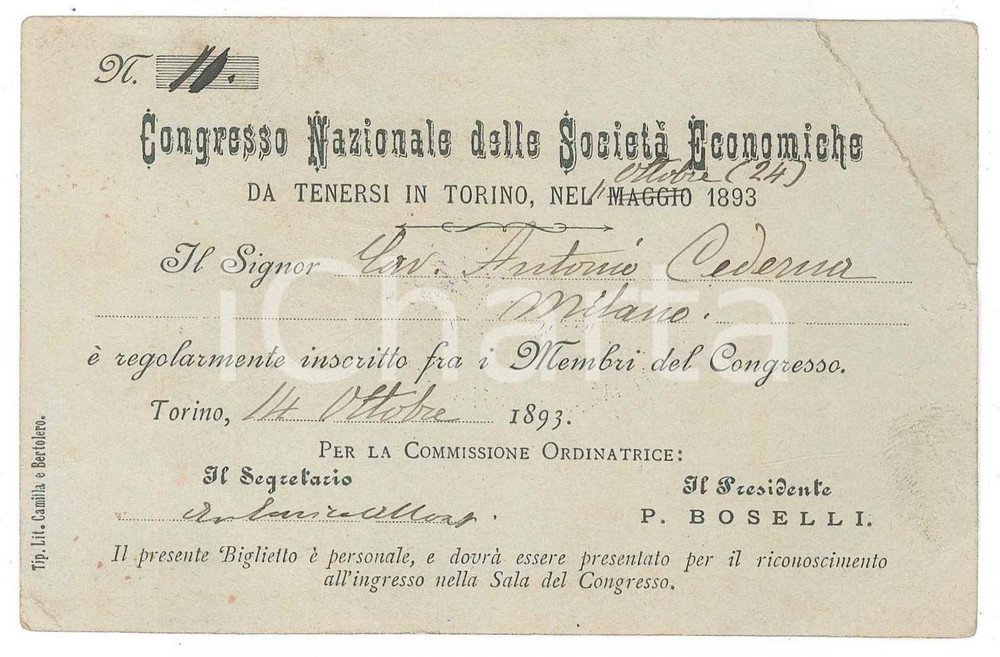 N. 10.
Congresso Nazionale delle Società Economiche
Ottobre (24)
DA TENERSI IN TORINO, NEL MAGGIO 1893
Il Signor Cav. Antonio Cederna
Milano.
è regolarmente inscritto fra i Membri del Congresso.
Torino, 14 Ottobre 1893.
PER LA COMMISSIONE ORDINATRICE:
Il Segretario
Il Presidente
P. BOSELLI.
Il presente Biglietto è personale, e dovrà essere presentato per il riconoscimento
all'ingresso nella Sala del Congresso.
Tip. Lit. Camilla e Bertolero.
iCharta